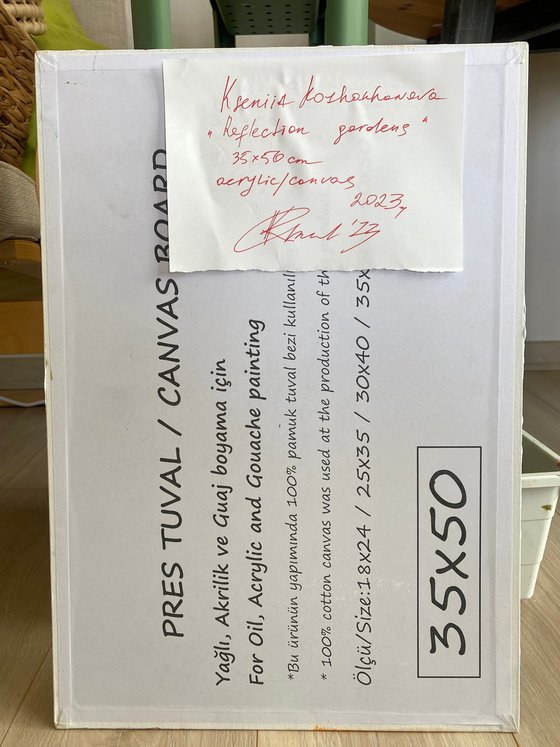 Kseniia Kozhakhanova
"Reflection gardens"
35x50 cm
acrylic/canvas
2023 y
'23
PRES TUVAL / CANVAS BOARD
Yağlı, Akrilik ve Guaj boyama için
For Oil, Acrylic and Gouache painting
*Bu ürünün yapımında 100% pamuk tuval bezi kullanıl
* 100% cotton canvas was used at the production of th
Ölçü/Size:18X24 / 25X35 / 30X40 / 35X
35X50